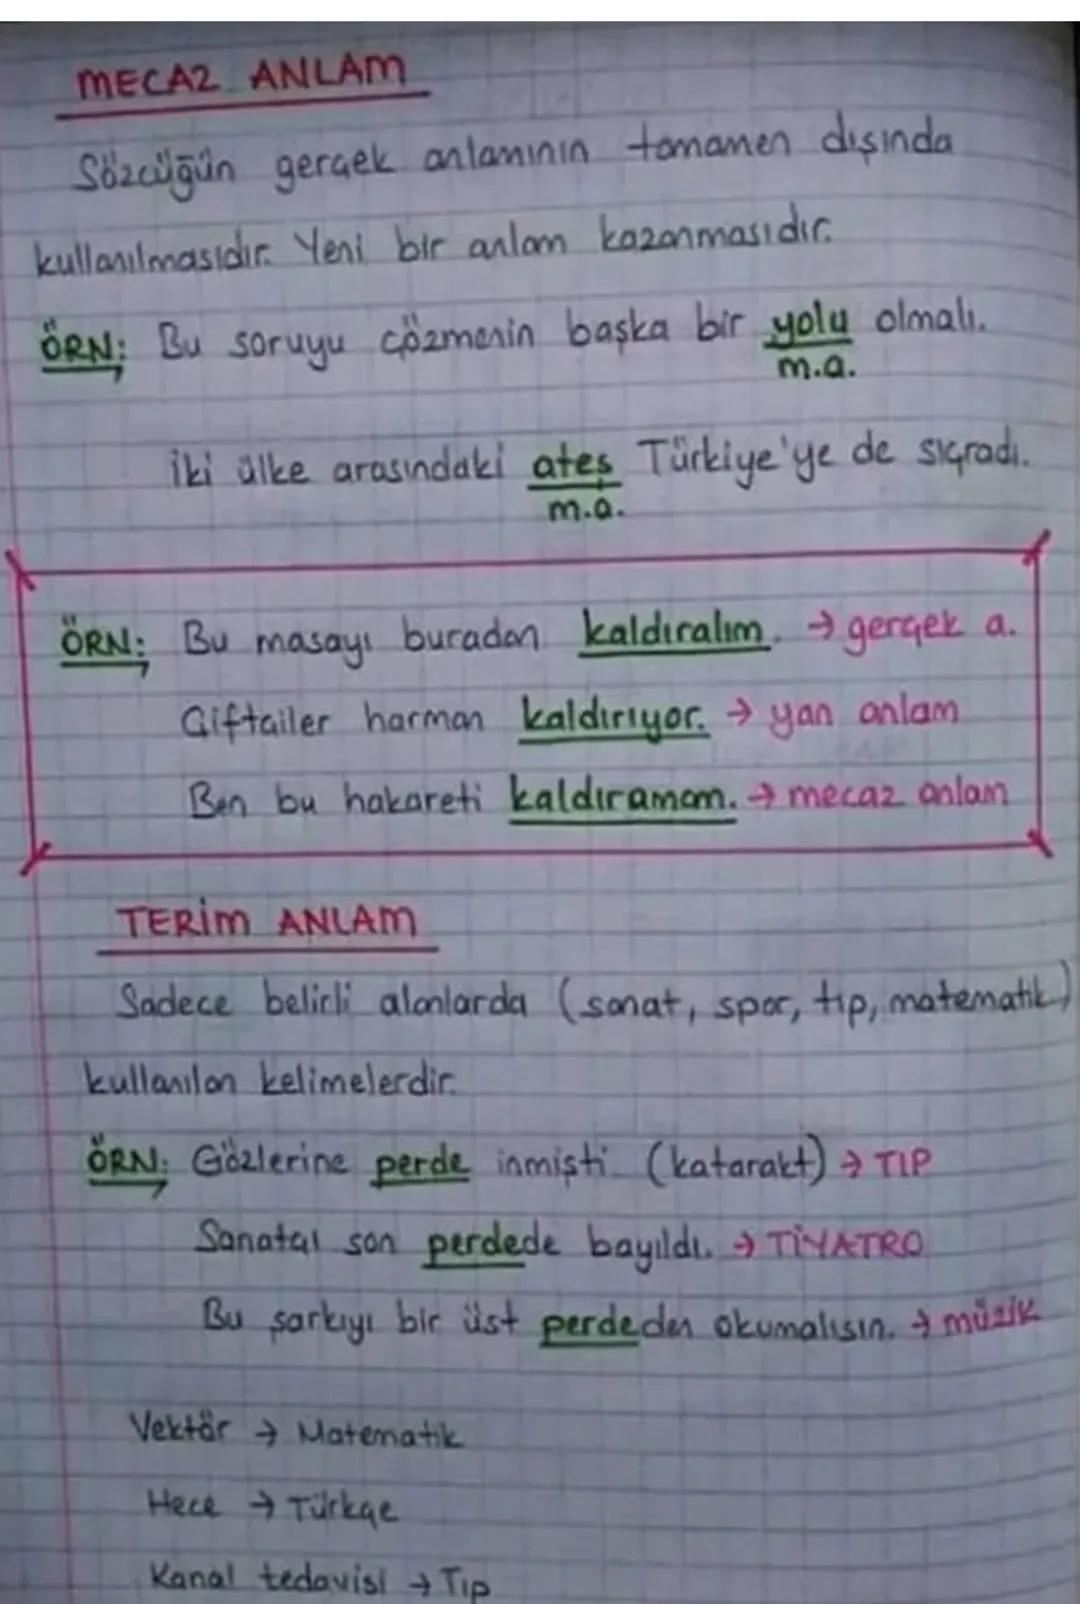 MECAZ ANLAM
Sözcüğün gerçek anlamının tamamen dışında
kullanılmasıdır. Yeni bir anlam kazanmasıdır.
ÖRN: Bu soruyu çözmenin başka bir yolu olmalı.
m.a.
İki ülke arasındaki ateş Türkiye'ye de sıçradı.
m.a.
ÖRN: Bu masayı buradan kaldıralım. → gerçek a.
Çiftçiler harman kaldırıyor. → yan anlam
Ben bu hakareti kaldıramam. → mecaz anlam
TERİM ANLAM
Sadece belirli alanlarda (sanat, spor, tıp, matematik)
kullanılan kelimelerdir.
ÖRN: Gözlerine perde inmişti (katarakt) → TIP
Sanatçı son perdede bayıldı. → TİYATRO
Bu şarkıyı bir üst perdeden okumalısın. → müzik
Vektör → Matematik
Hece → Türkçe
Kanal tedavisi → Tıp